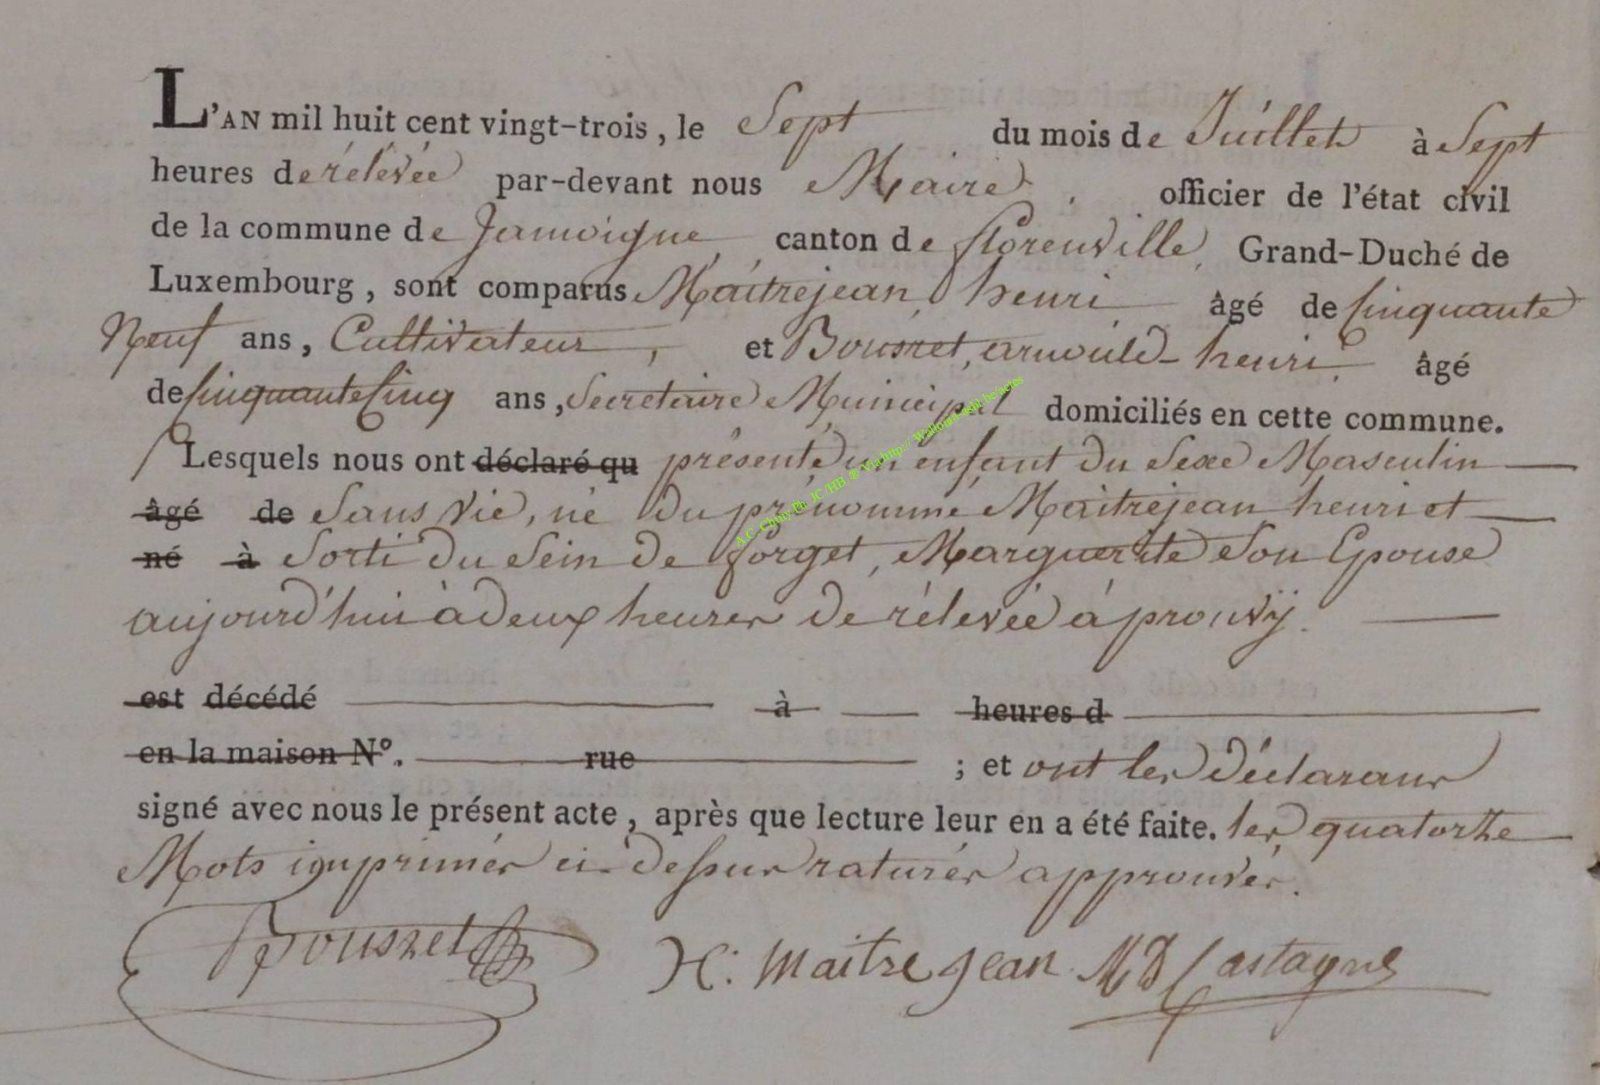 L'AN mil huit cent vingt-trois, le Sept du mois de Juillet à Sept
heures de rélévée par-devant nous Maire. officier de l'état civil
de la commune de Jamoigne, canton de florenville, Grand-Duché de
Luxembourg, sont comparus Maitréjean henri âgé de Cinquante
Neuf ans, Cultivateur, et Bousret, arnould-henri, âgé
de Cinquante Cinq ans, Secretaire Municipal domiciliés en cette commune.
Lesquels nous ont déclaré qu présenté un enfant du Sexe Masculin
âgé de Sans Vie, né du prénommé Maitréjean henri et
né à Sorti du Sein de forget, Marguerite Son Epouse
aujourd'hui à deux heures de rélevée à prouvÿ.
est décédé à heures d
en la maison N°. rue ; et ont les déclarans
signé avec nous le présent acte, après que lecture leur en a été faite. les quatorze
Mots imprimés ci-dessus raturés approuvés.
Bousret H: maitre jean MD Castagne
A.C. Chiny Ph. JC /HB ® Via http:// Wallonia-asbl.be/actes